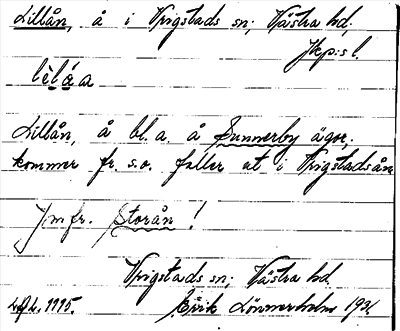 Lillån, å i Vrigstads sn; Västra hd,
Jkp:s l.
Lillån, å bl. a. å Sunnerby ägor;
kommer fr. s.o. faller ut i Vrigstadsån
Jmfr. Storån!
Vrigstads sn; Västra hd.
1115. Erik Lönnerholm 1931.